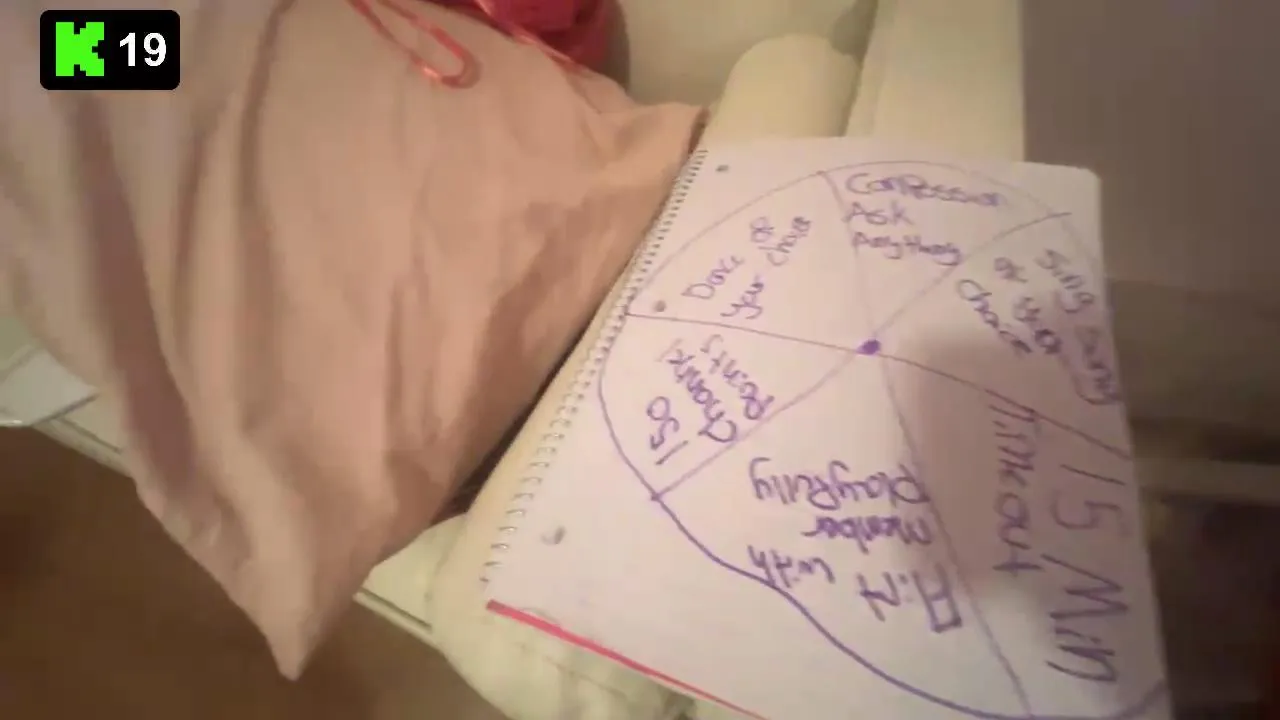 K 19
Confession
Ask
Anything
Song Sung
of your
choice
15 Min
Timeout
Flirt
with
member
Playfully
150
Channel
Points
Dance of
your choice